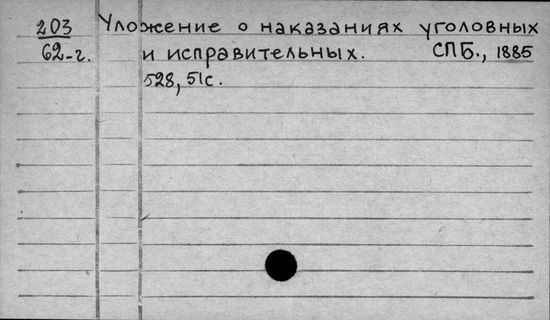 203 Уложение о наказаниях уголовных
62-г. и исправительных. СПБ., 1885
528, 51с.